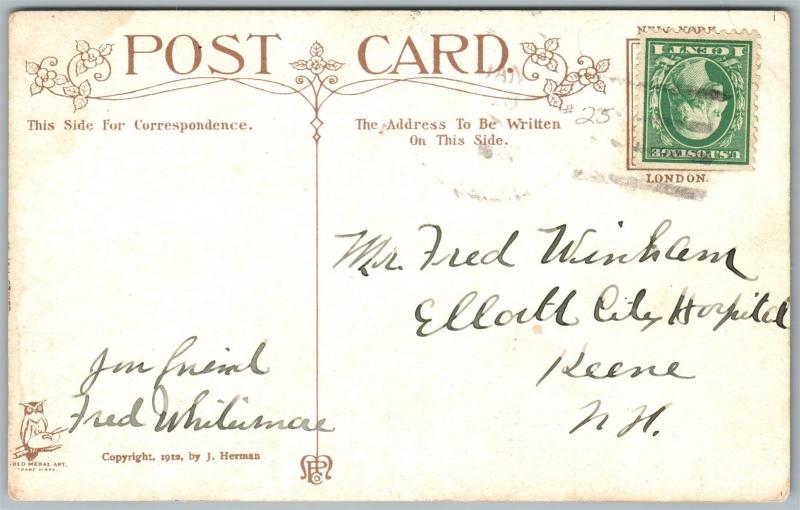 POST CARD.
This Side For Correspondence.
The Address To Be Written
On This Side.
NEW YORK
LONDON.
1 CENT 1
U.S. POSTAGE
JAN
#25
Mr. Fred Winham
Elloatt City Hospital
Keene
N.H.
your friend
Fred
GOLD MEDAL ART.
TRADE MARK
Copyright, 1912, by J. Herman